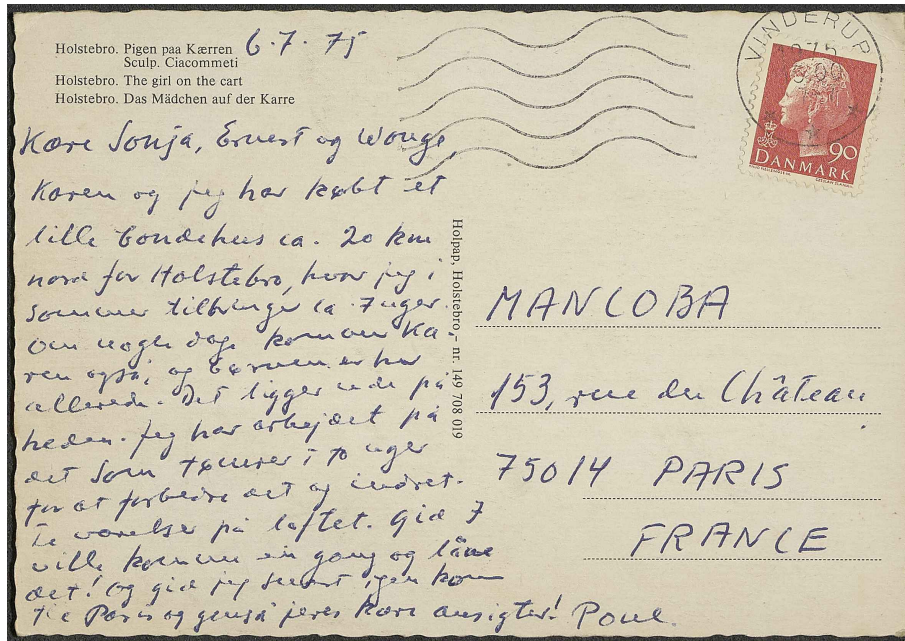 Holstebro. Pigen paa Kærren
Sculp. Ciacommeti
Holstebro. The girl on the cart
Holstebro. Das Mädchen auf der Karre
6.7.75
VINDERUP
DANMARK 90
Kære Sonja, Ernest og Wonge,
Karen og jeg har købt et
lille bondehus ca. 20 km
nord for Holstebro, hvor jeg i
sommer tilbringer ca. 7 uger.
Om nogle dage kommer Ka-
ren også, og børnene er her
allerede. Det ligger ude på
heden. Jeg har arbejdet på
det som tømrer i to uger
for at forbedre det og indret-
te værelser på loftet. Gid I
ville komme en gang og låne
det! Og gid jeg snart igen kom
til Paris og genså jeres kære ansigter! Poul.
Holpap, Holstebro - nr. 149 708 019
MANCOBA
153, rue du Château
75014 PARIS
FRANCE